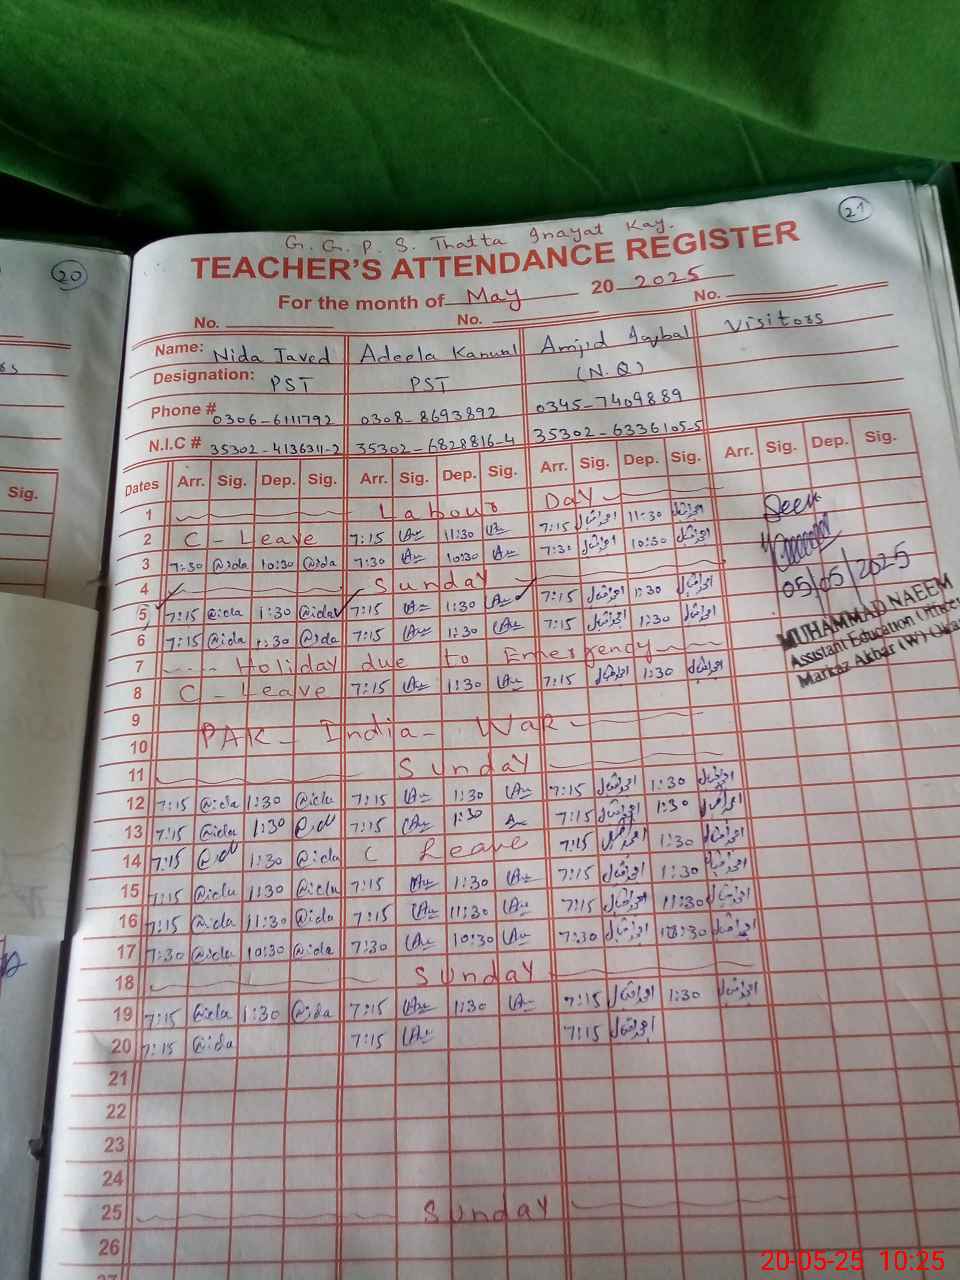 20
21
G. G. P. S. Thatta Inayat Kay.
TEACHER'S ATTENDANCE REGISTER
For the month of May 20 2025
No. No. No.
Name: Nida Javed Adeela Kanwal Amjid Iqbal Visitors
Designation: PST PST (N.Q)
Phone # 0306-6111792 0308-8693892 0345-7409889
N.I.C # 35302-4136311-2 35302-6828816-4 35302-6336105-5
Sig.
Dates Arr. Sig. Dep. Sig. Arr. Sig. Dep. Sig. Arr. Sig. Dep. Sig. Arr. Sig. Dep. Sig.
1 Labour Day
2 C - Leave 7:15 11:30 7:15 11:30
3 7:30 10:30 7:30 10:30 7:30 10:30
4 Sunday
5 7:15 1:30 7:15 1:30 7:15 1:30
6 7:15 1:30 7:15 1:30 7:15 1:30
7 Holiday due to Emergency
8 C - Leave 7:15 1:30 7:15 1:30
9 PAK - India - War
10
11 Sunday
12 7:15 1:30 7:15 1:30 7:15 1:30
13 7:15 1:30 7:15 1:30 7:15 1:30
14 7:15 1:30 C Leave 7:15 1:30
15 7:15 1:30 7:15 1:30 7:15 1:30
16 7:15 11:30 7:15 11:30 7:15 11:30
17 7:30 10:30 7:30 10:30 7:30 10:30
18 Sunday
19 7:15 1:30 7:15 1:30 7:15 1:30
20 7:15 7:15 7:15
21
22
23
24
25 Sunday
26
27
Seen
05/05/2025
MUHAMMAD NAEEM
Assistant Education Officer
Markaz Akbar (W) Okara
20-05-25 10:25